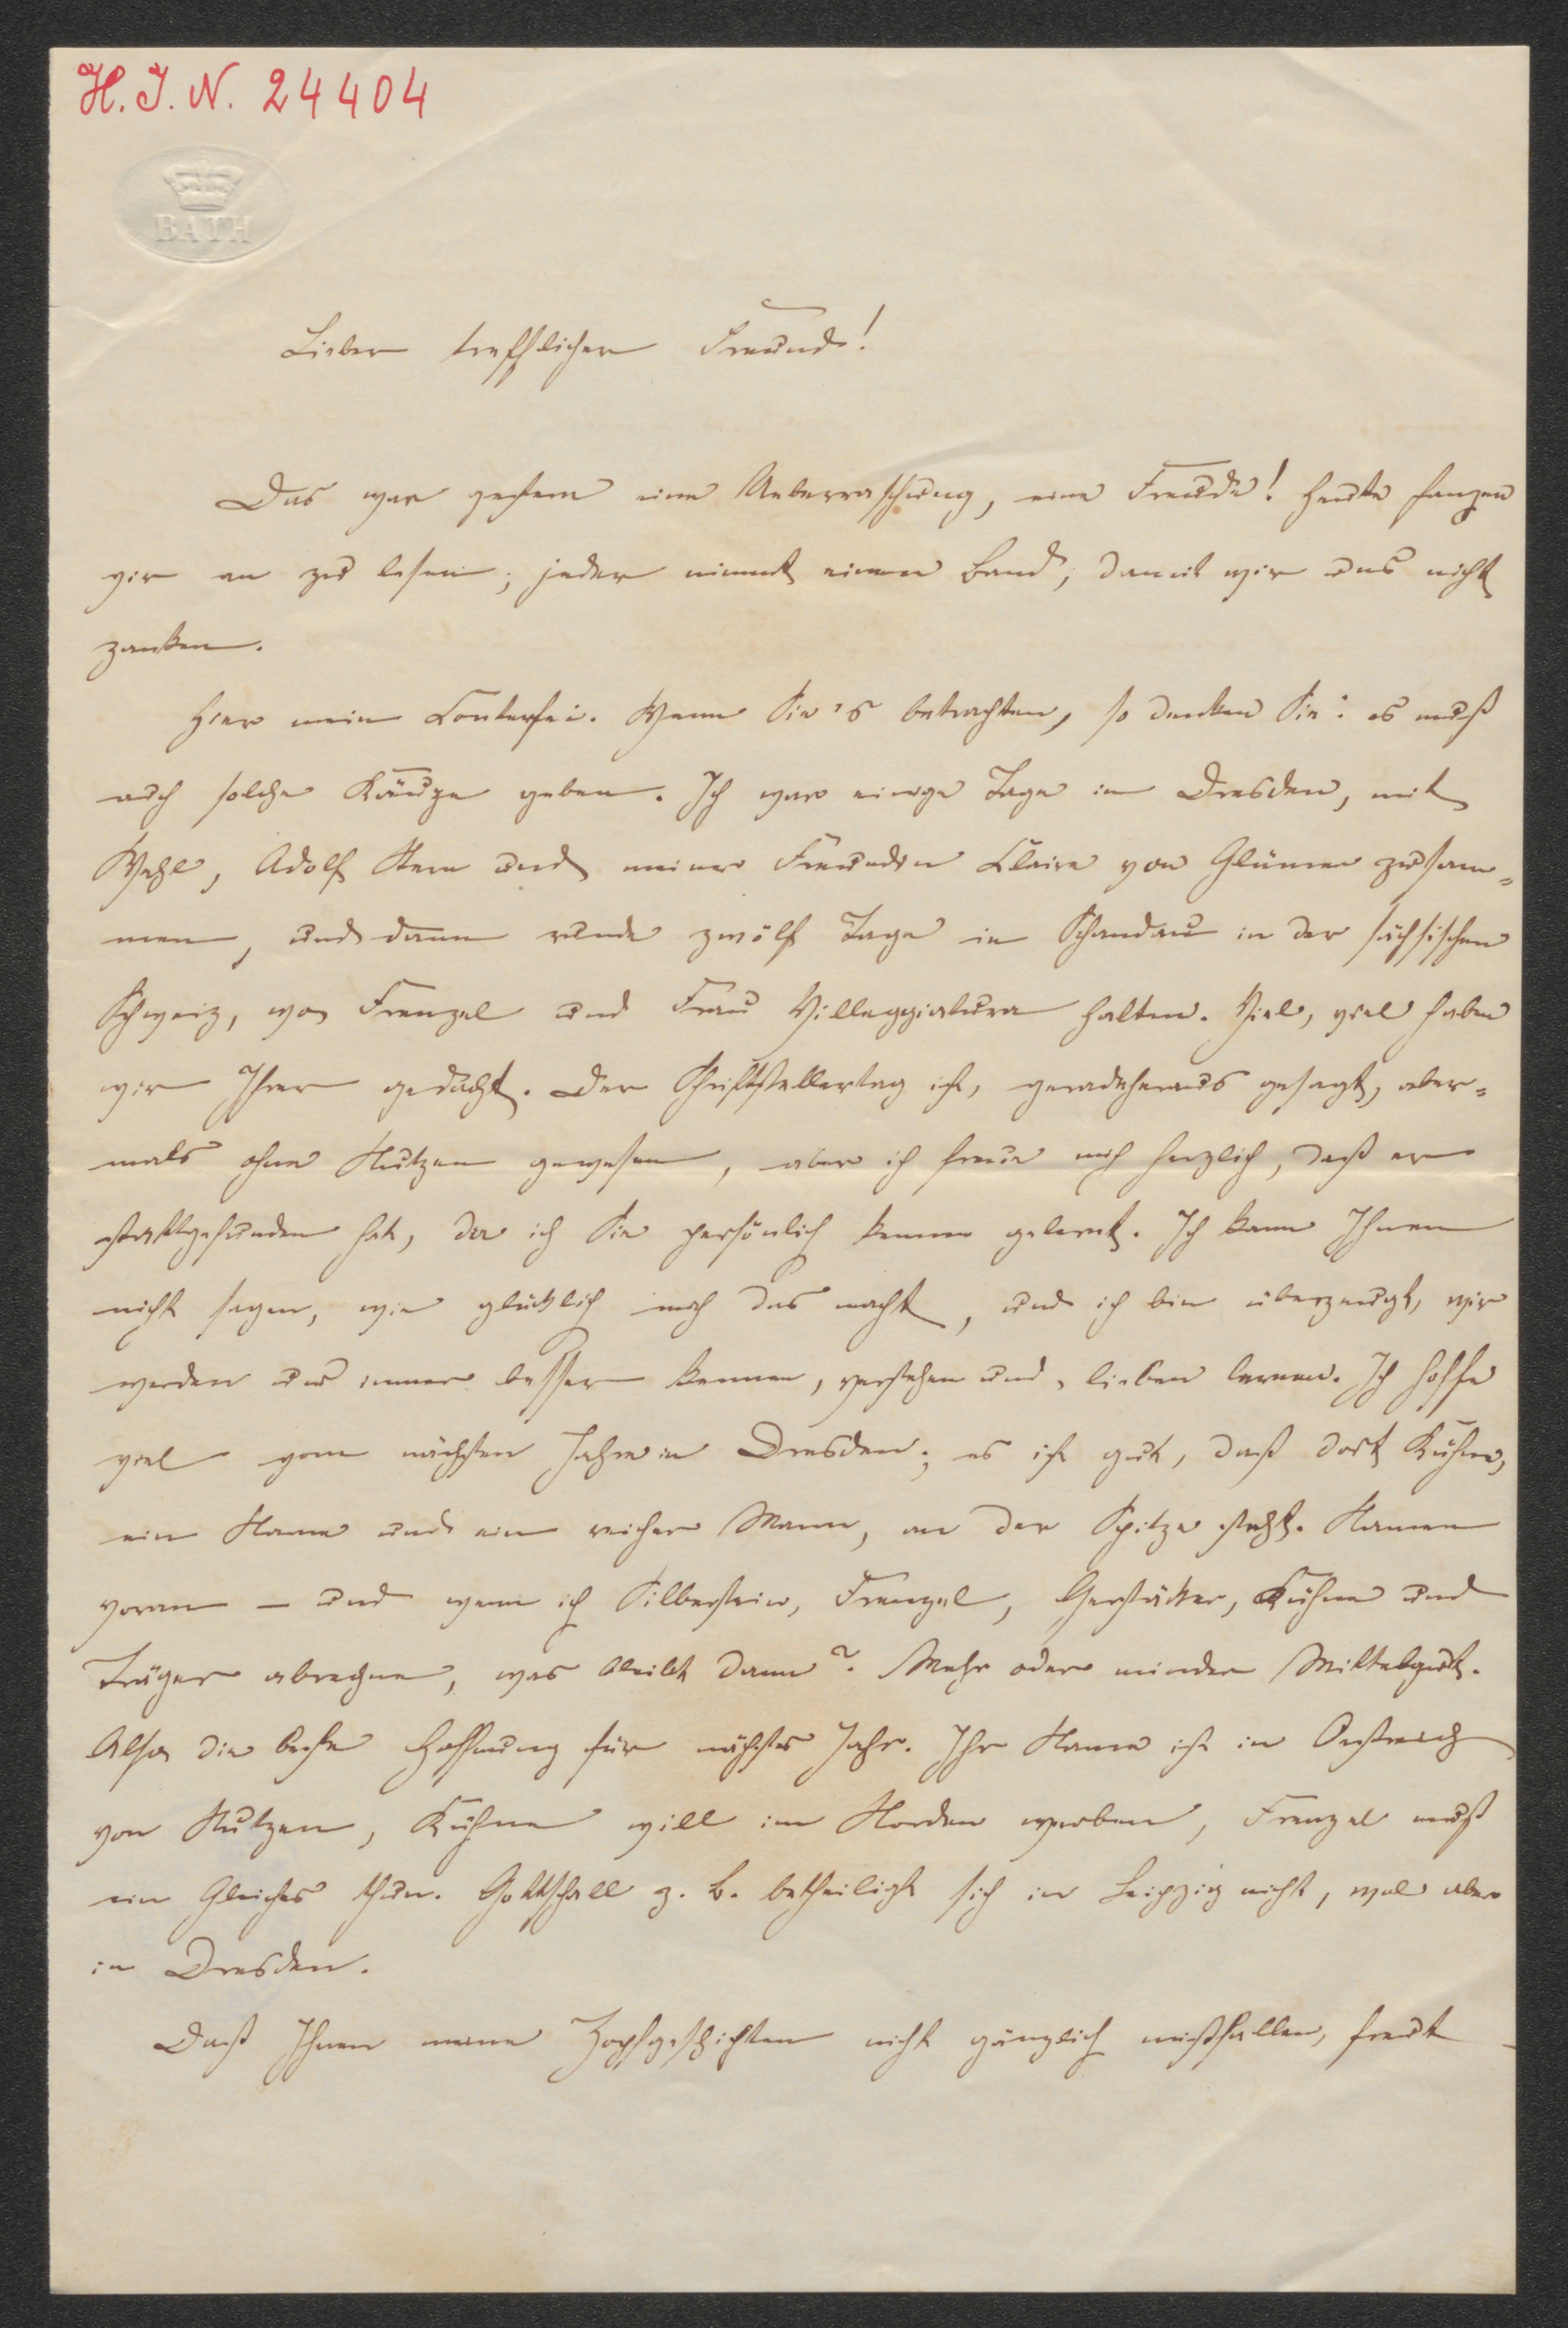 H. I. N. 24404
BATH
Lieber trefflicher Freund!
Das war gestern eine Ueberraschung, eine Freude! Heute fangen
wir an zu lesen; jeder nimmt einen Band, damit wir uns nicht
zanken.
Hier mein Conterfei. Wenn Sie's betrachten, so denken Sie: es muß
auch solche Käuze geben. Ich war einige Tage in Dresden, mit
Wehl, Adolf Stern und meiner Freundin Claire von Glümer zusam=
men, und dann runde zwölf Tage in Schandau in der sächsischen
Schweiz, wo Frenzel und Frau Villeggiatura halten. Viel, viel haben
wir Ihrer gedacht. Der Schriftstellertag ist, geradeheraus gesagt, aber=
mals ohne Nutzen gewesen, aber ich freue mich herzlich, daß er
stattgefunden hat, da ich Sie persönlich kennen gelernt. Ich kann Ihnen
nicht sagen, wie glücklich mich das macht, und ich bin überzeugt, wir
werden uns immer besser kennen, verstehen und lieben lernen. Ich hoffe
viel vom nächsten Jahre in Dresden; es ist gut, daß dort Kühne,
ein Name und ein reicher Mann, an der Spitze steht. Namen
voran – und wenn ich Silberstein, Frenzel, Gerstäcker, Kühne und
Träger abrechne, was bleibt dann? Mehr oder minder Mittelgut.
Also die beste Hoffnung für nächstes Jahr. Ihr Name ist in Oestreich
von Nutzen, Kühne will im Norden werben, Frenzel muß
ein Gleiches thun. Gottschall z. B. betheiligt sich in Leipzig nicht, wol aber
in Dresden.
Daß Ihnen meine Zopfgeschichten nicht gänzlich mißfallen, freut